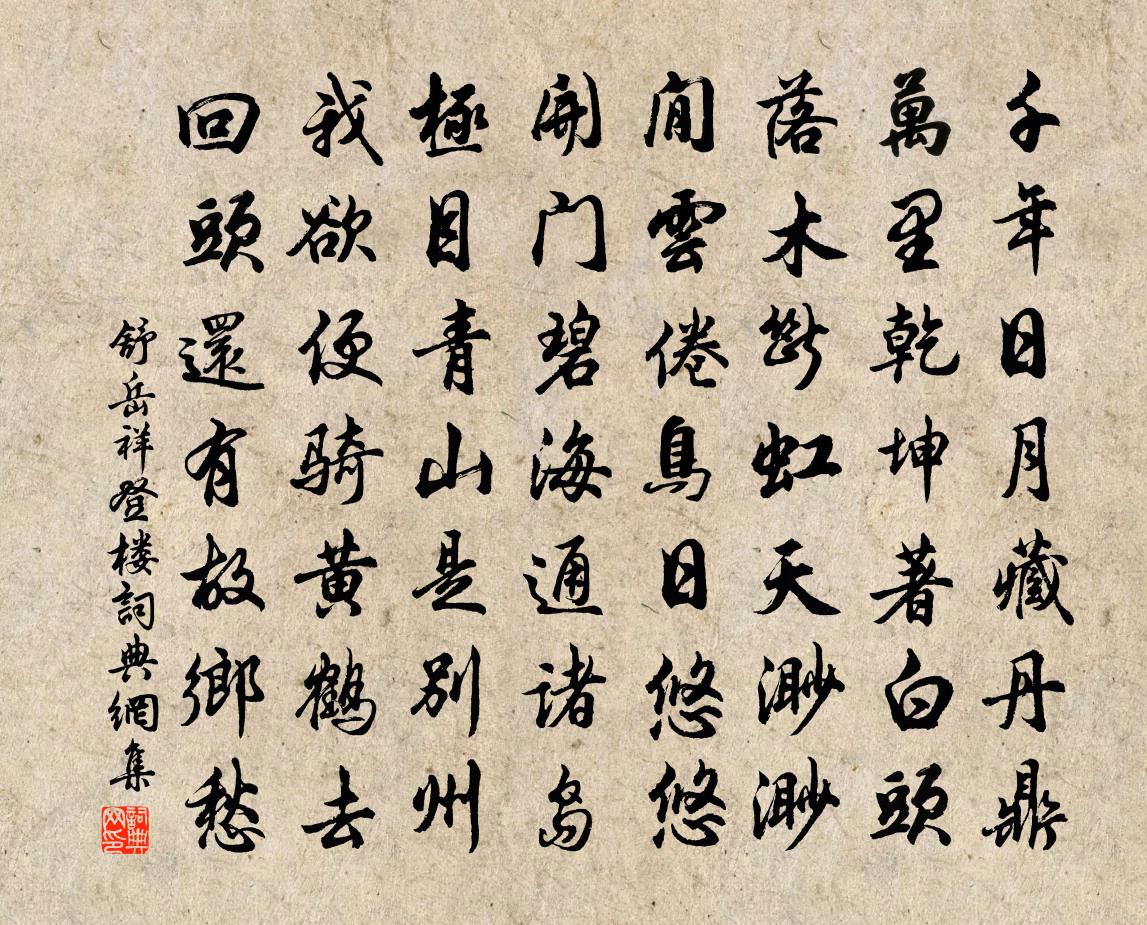 千年日月藏丹鼎
萬里乾坤著白頭
落木斷虹天渺渺
閒雲倦鳥日悠悠
開门碧海通诸島
極目青山是别州
我欲便骑黄鶴去
回頭還有故鄉愁
舒岳祥登楼詞典網集
詞典網印